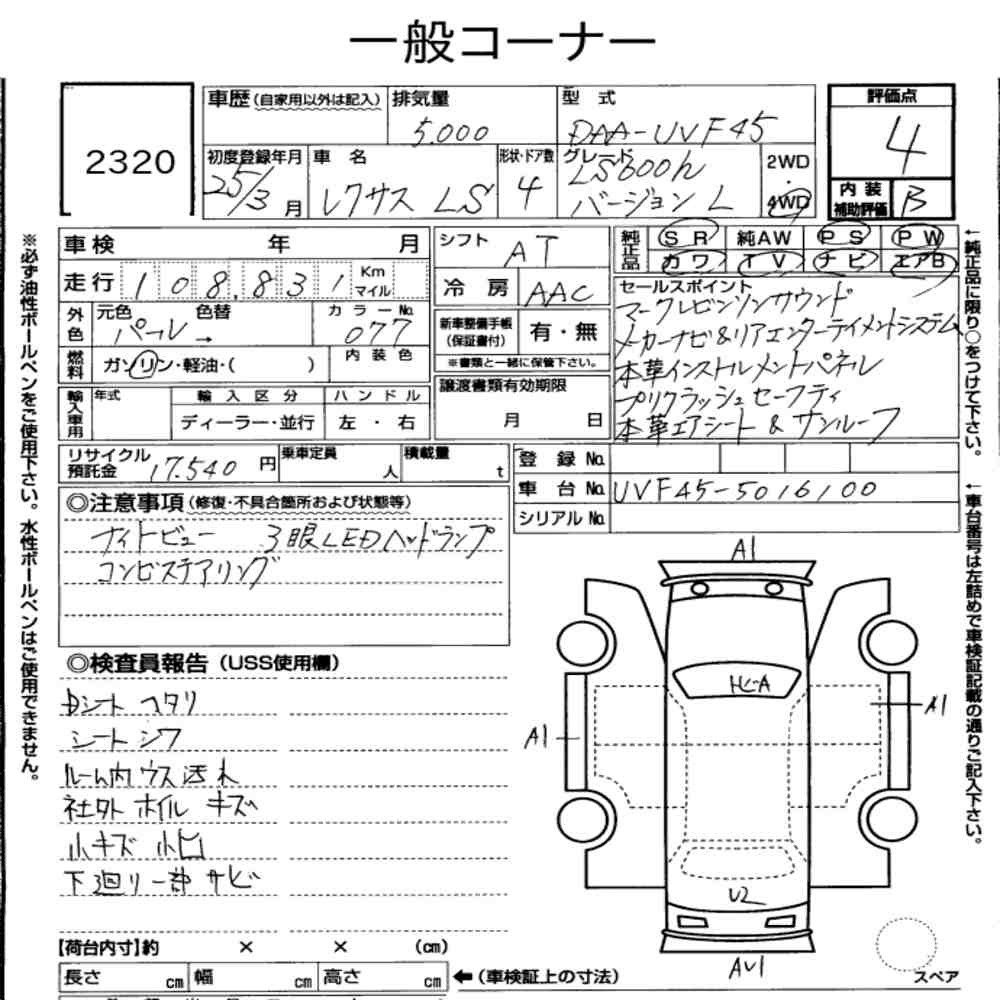 一般コーナー
2320
車歴(自家用以外は記入) 排気量 5.000 型式 DAA-UVF45
評価点 4
初度登録年月 25/3月 車名 レクサス LS 形状・ドア数 4 グレード LS600h バージョン L 2WD・4WD
内装補助評価 B
車検 年 月
走行 108,831 Km マイル
外色 元色 パール→ 色替 カラーNo. 077
燃料 ガソリン・軽油・( ) 内装色
輸入車用 年式 輸入区分 ディーラー・並行 ハンドル 左・右
シフト AT
冷房 AAC
新車整備手帳(保証書付) 有・無
※書類と一緒に保管下さい。
譲渡書類有効期限 月 日
純正品 SR 純AW PS PW
カワ TV ナビ エアB
セールスポイント
マークレビンソンサウンド
メーカーナビ&リアエンターテイメントシステム
本革インストルメントパネル
プリクラッシュセーフティ
本革エアシート & サンルーフ
リサイクル預託金 17.540円 乗車定員 人 積載量 t
登録No.
車台No. UVF45-5016100
シリアルNo.
◎注意事項(修復・不具合箇所および状態等)
ナイトビュー 3眼LEDヘッドランプ
コンビステアリング
◎検査員報告(USS使用欄)
Dシート コスリ
シート シワ
ルーム内 ウス汚れ
社外ホイル キズ
小キズ 小凹
下廻り一部サビ
A1
ヒA
A1
A1
U2
AU1
スペア
【荷台内寸】約 × × (cm)
長さ cm 幅 cm 高さ cm ←(車検証上の寸法)
※必ず油性ボールペンをご使用下さい。水性ボールペンはご使用できません。
←純正品に限り○をつけて下さい。
←車台番号は左詰めで車検証記載の通りご記入下さい。